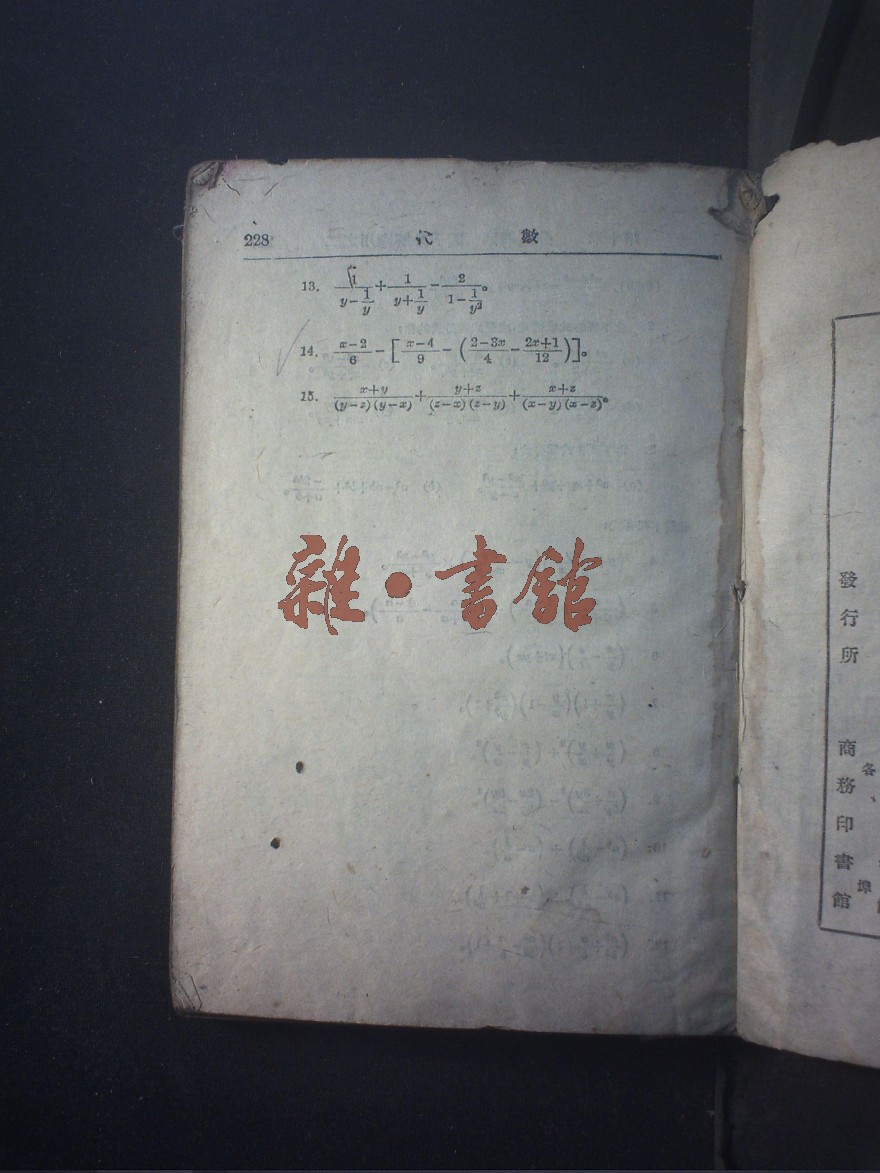 228 代 數
13. \frac{1}{y-\frac{1}{y}}+\frac{1}{y+\frac{1}{y}}-\frac{2}{1-\frac{1}{y^2}}。
14. \frac{x-2}{6}-[\frac{x-4}{9}-(\frac{2-3x}{4}-\frac{2x+1}{12})]。
15. \frac{x+y}{(y-z)(y-x)}+\frac{y+z}{(z-x)(z-y)}+\frac{x+z}{(x-y)(x-z)}。
雜·書館
發行所 商務印書館
各
埠